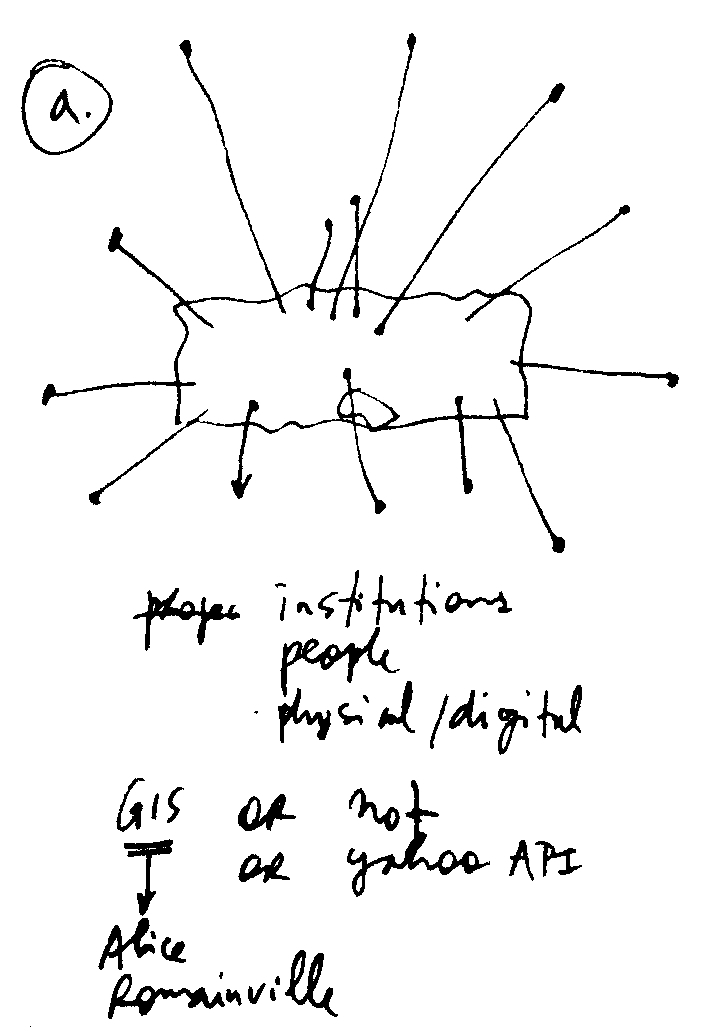 a.
institutions
people
physical/digital
GIS OR not
OR yahoo API
Alice
Romainville